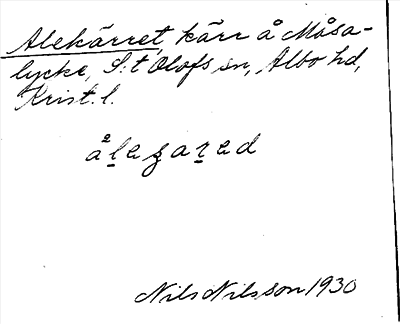 Alekärret, kärr å Måsa-
lycke, S:t Olofs sn, Albo hd,
Krist. l.
ålezared
Nils Nilsson 1930